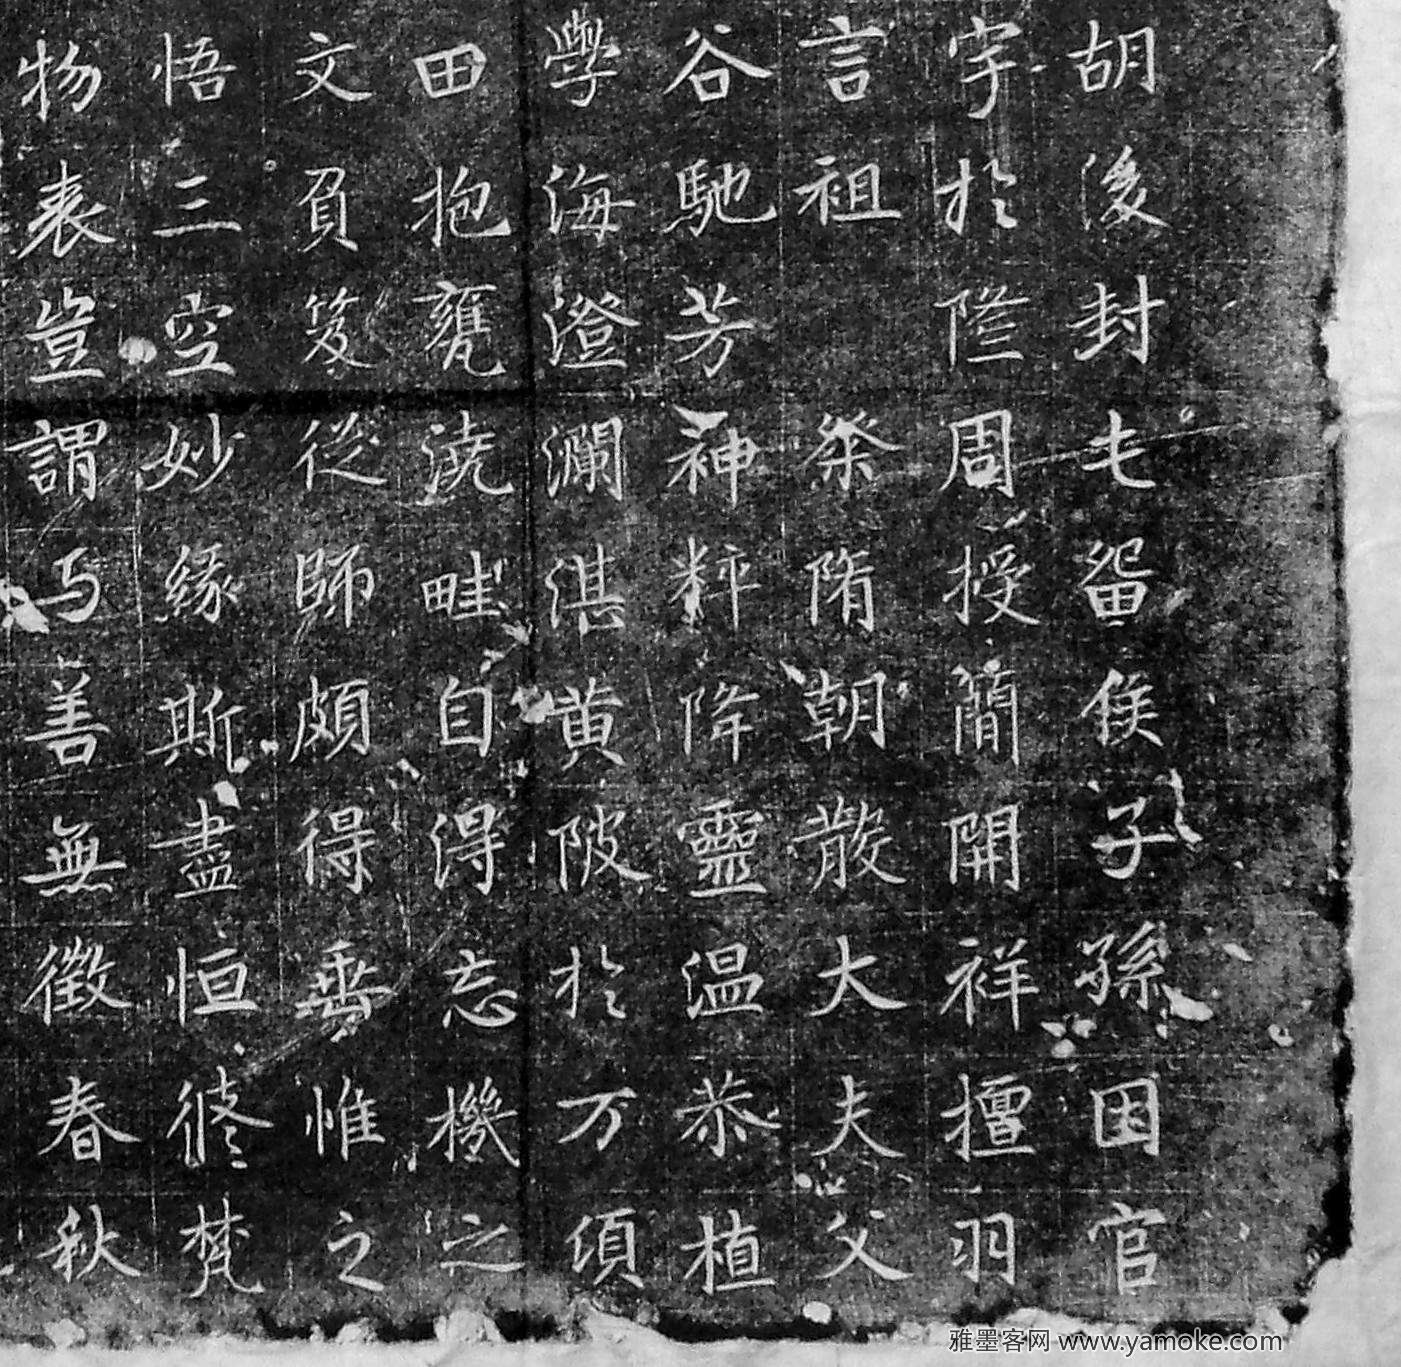 胡後封七留侯子孫因官
宇於隆周授簡開祥擅羽
言祖 粲隋朝散大夫父
谷馳芳神粹降靈温恭植
學海澄瀾湛黄陂於万傾
田抱甕澆畦自得忘機之
文負笈從師頗得無惟之
悟三空妙緣斯盡恒修梵
物表豈謂与善無徵春秋
雅墨客网 www.yamoke.com